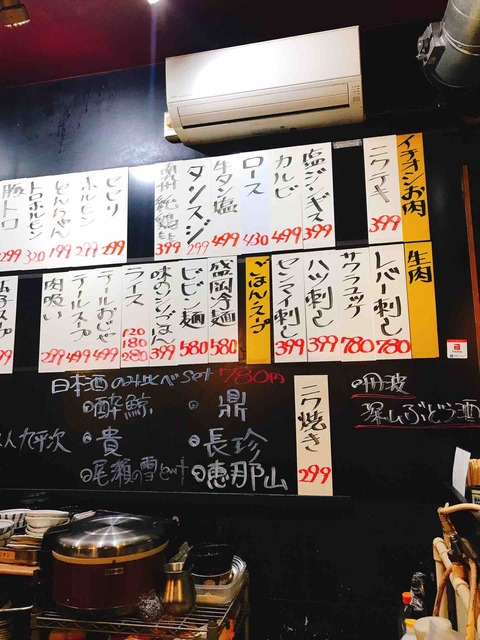 イチオシお肉
ニクテキ
399
塩ジンギス
399
カルビ
499
ロース
430
牛タン塩
499
タンスジ
299
399
ヒモリ
299
ホルモン
299
とんちゃん
199
トロホルモン
320
豚トロ
299
生肉
レバー刺し
780
サクラユッケ
780
ハツ刺し
399
センマイ刺し
399
ごはん・スープ
盛岡冷麺
580
ビビン麺
580
味のシンごはん
399
ライス
120
180
280
テールおじや
499
テールスープ
499
肉吸い
299
スープ
日本酒のみ比べset 780円
・酔鯨
・鼎
人九平次
・貴
・長珍
・尾瀬の雪どけ
・恵那山
ニク焼き
299
・丹波
深山ぶどう酒